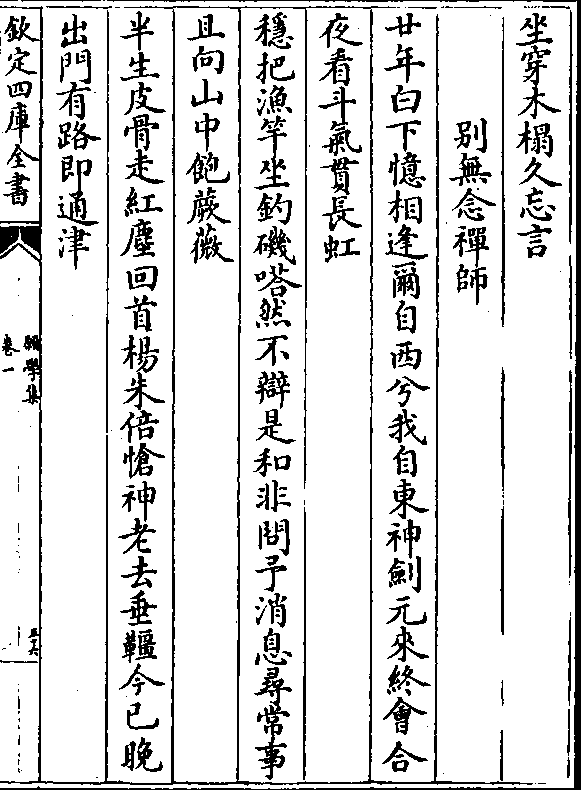 坐穿木榻久忘言
別無念禪師
廿年白下憶相逢爾自西兮我自東神劍元來終會合
夜看斗氣貫長虹
穩把漁竿坐釣磯嗒然不辯是和非問予消息尋常事
且向山中飽蕨薇
半生皮骨走紅塵回首楊朱倍愴神老去垂韁今已晚
出門有路即通津
欽定四庫全書
學集
卷一